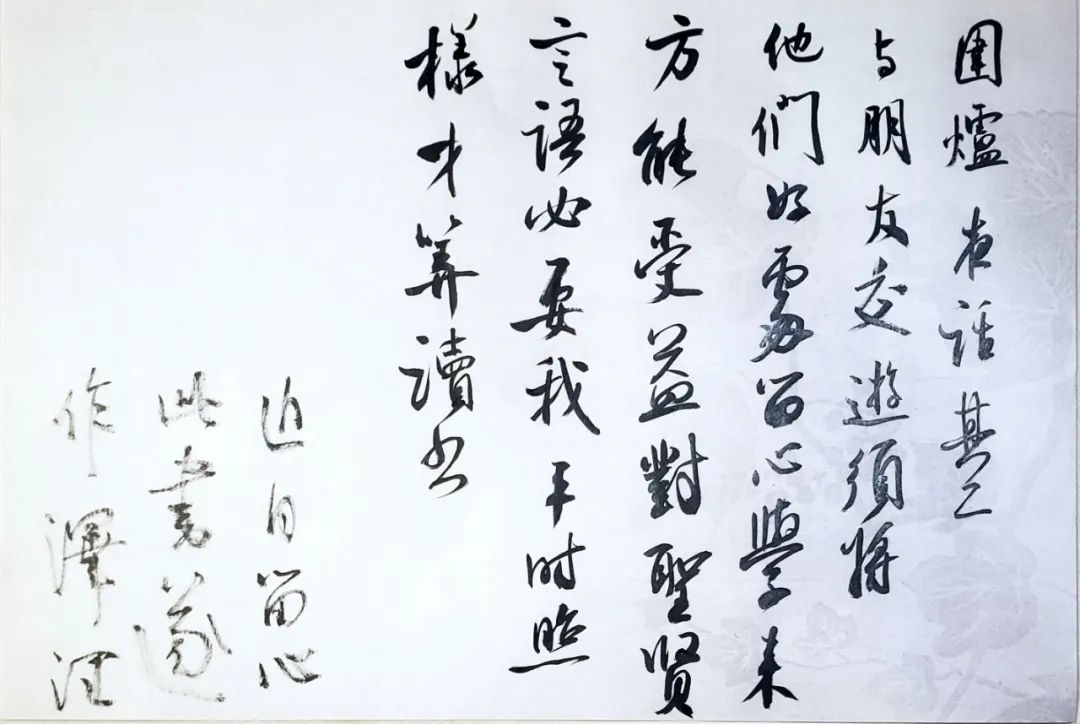 圍爐夜話其二
与朋友交遊須將
他們好處留心學来
方能受益對聖賢
言語必要我平时照
樣才算讀书
近日留心
此書遂
作澤